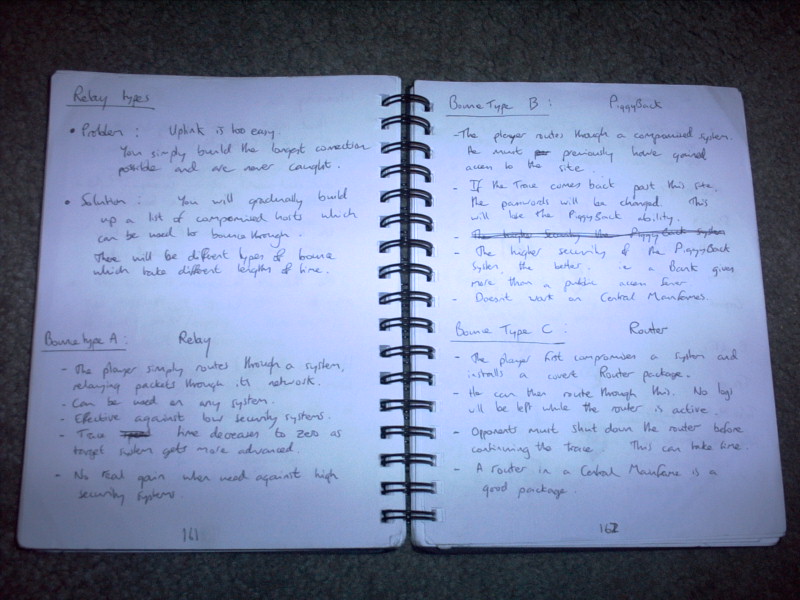 Relay types
• Problem : Uplink is too easy.
You simply build the longest connection
possible and are never caught.
• Solution : You will gradually build
up a list of compromised hosts which
can be used to bounce through.
There will be different types of bounce
which take different lengths of time.
Bounce type A : Relay
- The player simply routes through a system,
relaying packets through its network.
- Can be used on any system.
- Effective against low security systems.
- Trace time decreases to zero as
target system gets more advanced.
- No real gain when used against high
security systems.
161
Bounce Type B : PiggyBack
- The player routes through a compromised system.
He must previously have gained
access to the site.
- If the Trace comes back past this site.
the passwords will be changed. This
will lose the PiggyBack ability.
- The higher security the PiggyBack system
- The higher security of the PiggyBack
System, the better. ie a Bank gives
more than a public access server
- Doesnt work on Central Mainframes.
Bounce Type C : Router
- The player first compromises a system and
installs a covert Router package.
- He can then route through this. No logs
will be left while the router is active.
- Opponents must shut down the router before
continuing the Trace. This can take time.
- A router in a Central Mainframe is a
good package.
162